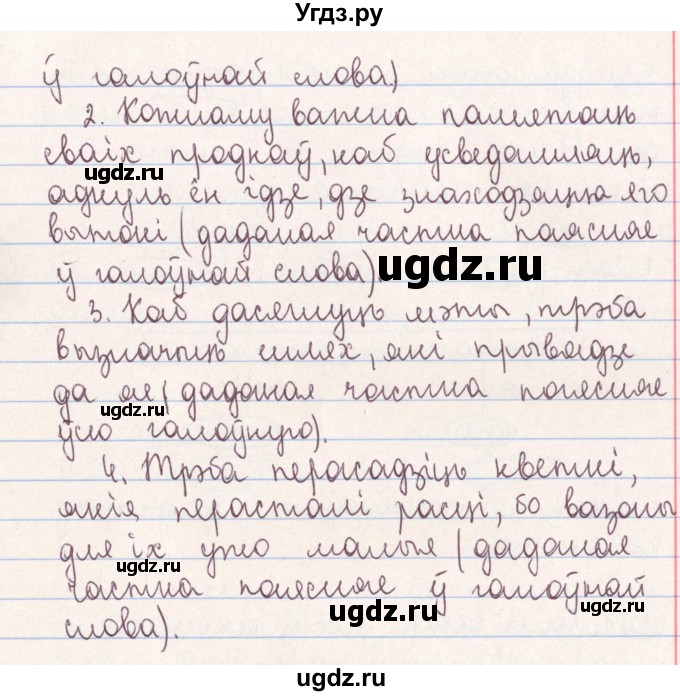 Угдз.ру
ў галоўнай слова)
2. Кожнаму важна памятаць
сваіх продкаў, каб усведамляць,
адкуль ён ідзе, дзе знаходзяцца яго
вытокі (даданая частка паясняе
ў галоўнай слова).
ugdz.ru
3. Каб дасягнуць мэты, трэба
вызначыць шлях, які прывядзе
да яе (даданая частка паясняе
ugdz.ru
ўсю галоўную).
4. Трэба перасадзіць кветкі,
якія перасталі расці, бо вазоны
для іх ужо малыя (даданая
ugdz.ru
частка паясняе ў галоўнай
ugdz.ru
слова).
ugdz.ru